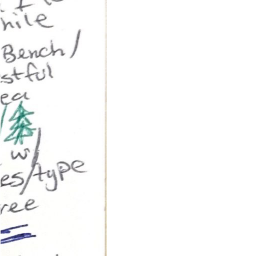 hile
Bench/
stful
ea
w/
es/type
ree